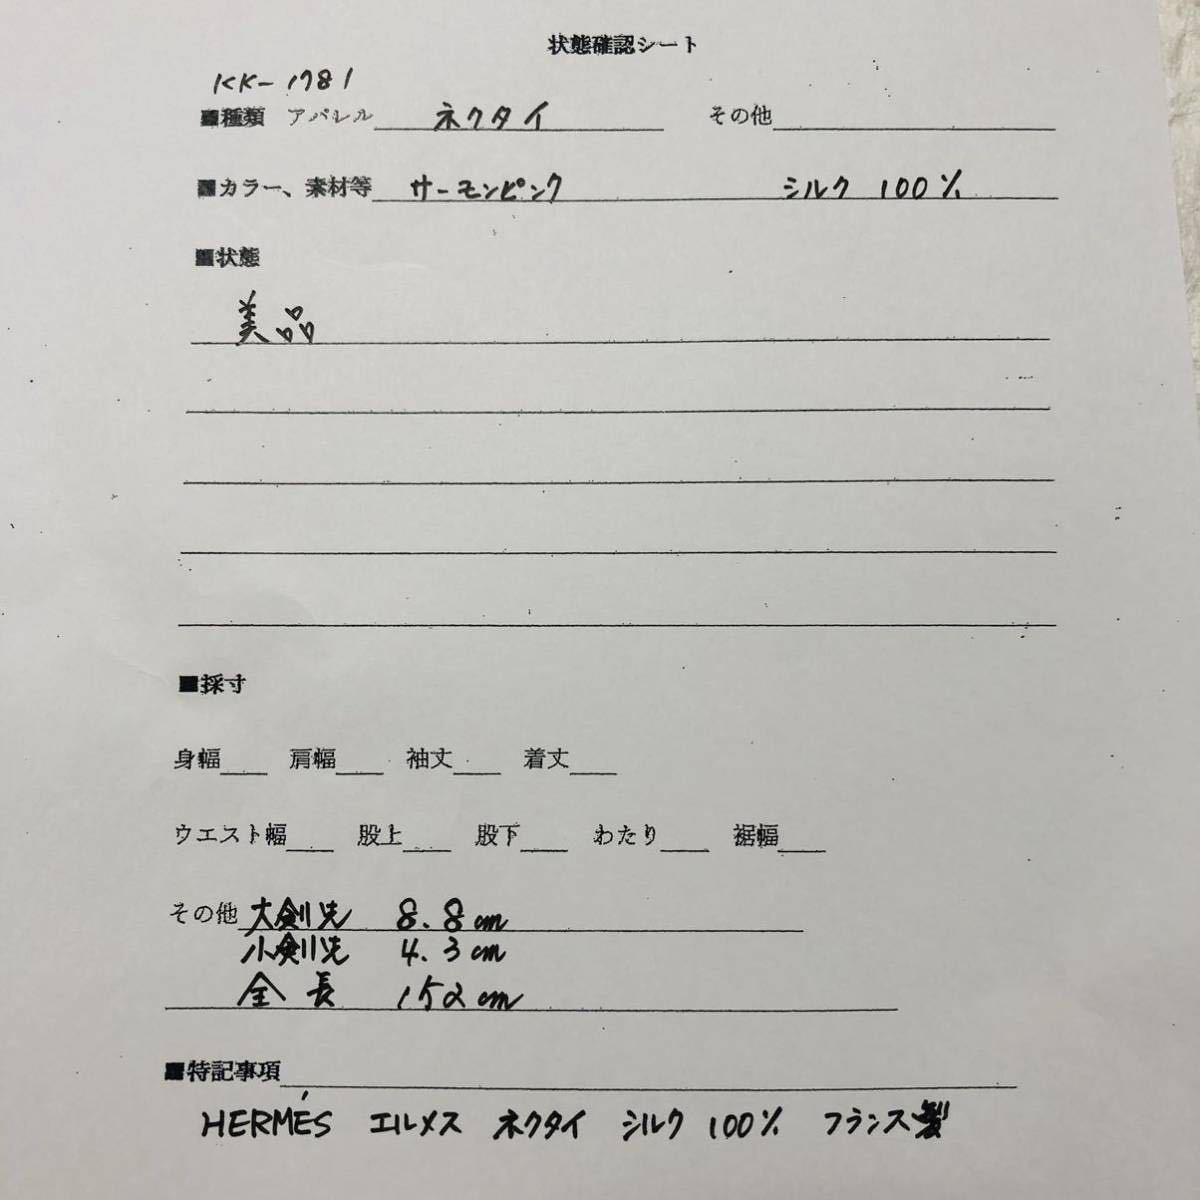 状態確認シート
KK-1781
■種類 アパレル ネクタイ その他
■カラー、素材等 サーモンピンク シルク 100%
■状態
美品
■採寸
身幅 肩幅 袖丈 着丈
ウエスト幅 股上 股下 わたり 裾幅
その他 大剣先 8.8cm
小剣先 4.3cm
全長 152cm
■特記事項
HERMÉS エルメス ネクタイ シルク 100% フランス製